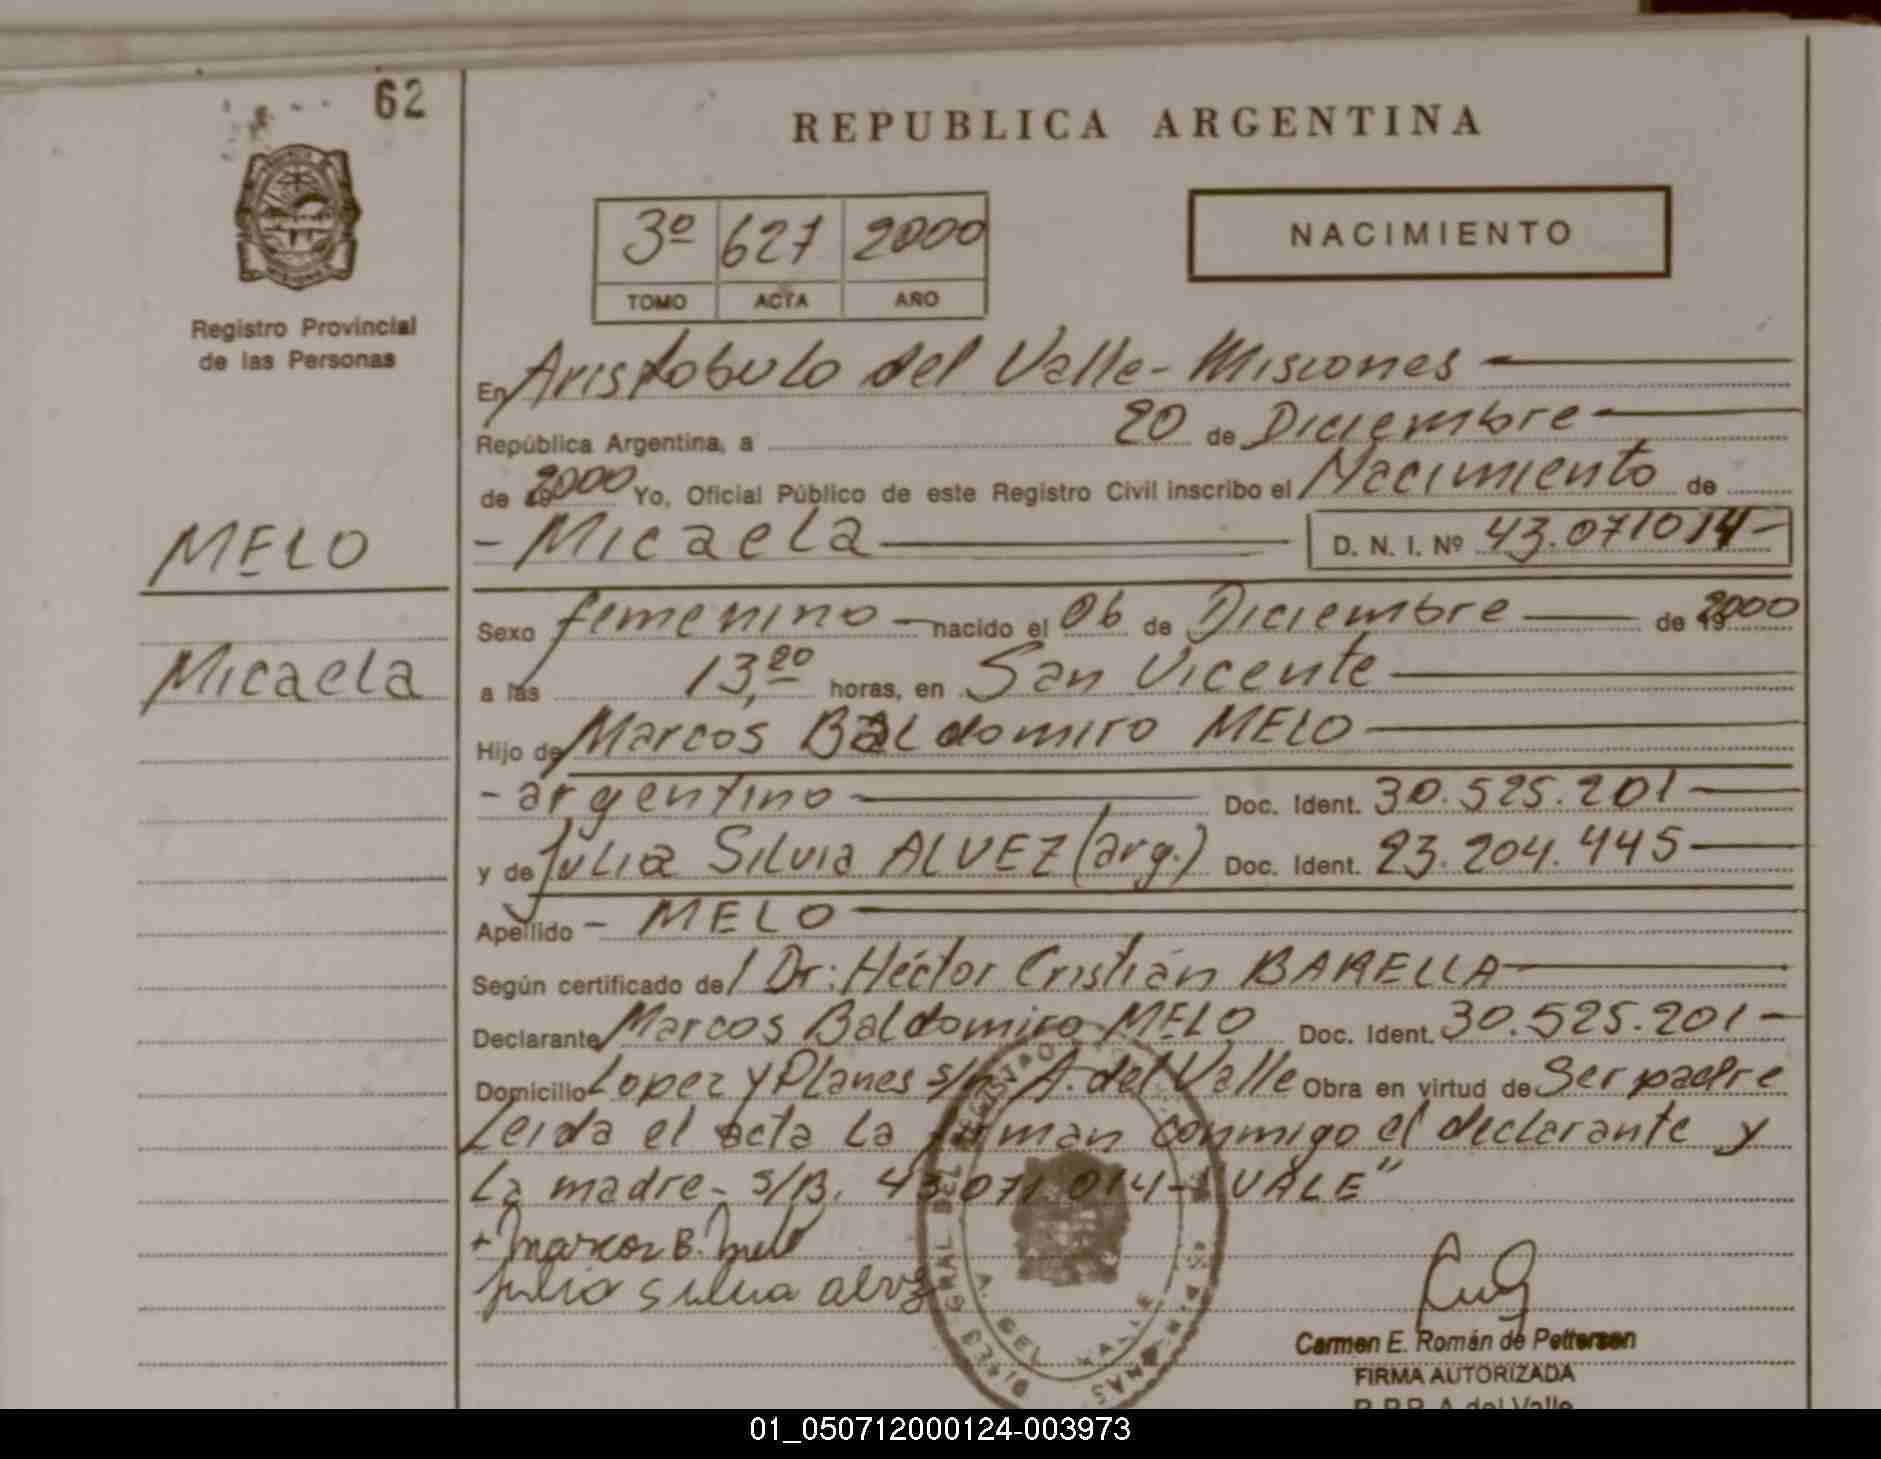 62
REPUBLICA ARGENTINA
NACIMIENTO
3º 627 2000
TOMO ACTA AÑO
Registro Provincial
de las Personas
En Aristobulo del Valle - Misiones
República Argentina, a 20 de Diciembre
de 2000 Yo, Oficial Público de este Registro Civil inscribo el Nacimiento de
- Micaela D. N. I. Nº 43.071014-
MELO
Micaela
Sexo femenino - nacido el 06 de Diciembre de 2000
a las 13,20 horas, en San Vicente
Hijo de Marcos Baldomiro MELO
- argentino Doc. Ident. 30.525.201
y de Julia Silvia ALVEZ (arg.) Doc. Ident. 23.204.445
Apellido - MELO
Según certificado de/ Dr: Héctor Cristián BARELLA
Declarante Marcos Baldomiro MELO Doc. Ident. 30.525.201-
Domicilio Lopez y Planes s/n A. del Valle Obra en virtud de Ser padre
Leida el acta la firman conmigo el declarante y
La madre - S/B. 43.071.014 - "VALE"
+ Marcos B. Melo
Julia Silvia Alvez
DEL VALLE
Carmen E. Román de Pettersen
FIRMA AUTORIZADA
R.P.P. A. del Valle
01_050712000124-003973